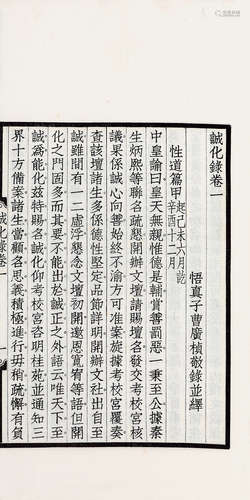 誠化錄卷一
悟真子曹廣楨敬錄並繹
性道篇甲 起己未六月訖辛酉十二月
中皇諭曰皇天無親惟德是輔賞善罰惡一秉至公據秦
生炳熙等聯名疏懇開辦文壇請賜壇名發交考校宮核
議果係誠心向善始終不渝方可准案旋據考校宮覆奏
查該壇諸生多係德性堅定品節詳明開辦文社出自至
誠雖間有一二虛浮懇念文壇初開邀寬宥等語但開
化之門固多而其要不能出於誠正之外語云唯天下至
誠爲能化茲特賜名誠化仰考校宮咨明桂苑並通知三
界十方備案諸生當顧名思義積極進行毋稍疏懈有負
誠化錄卷一